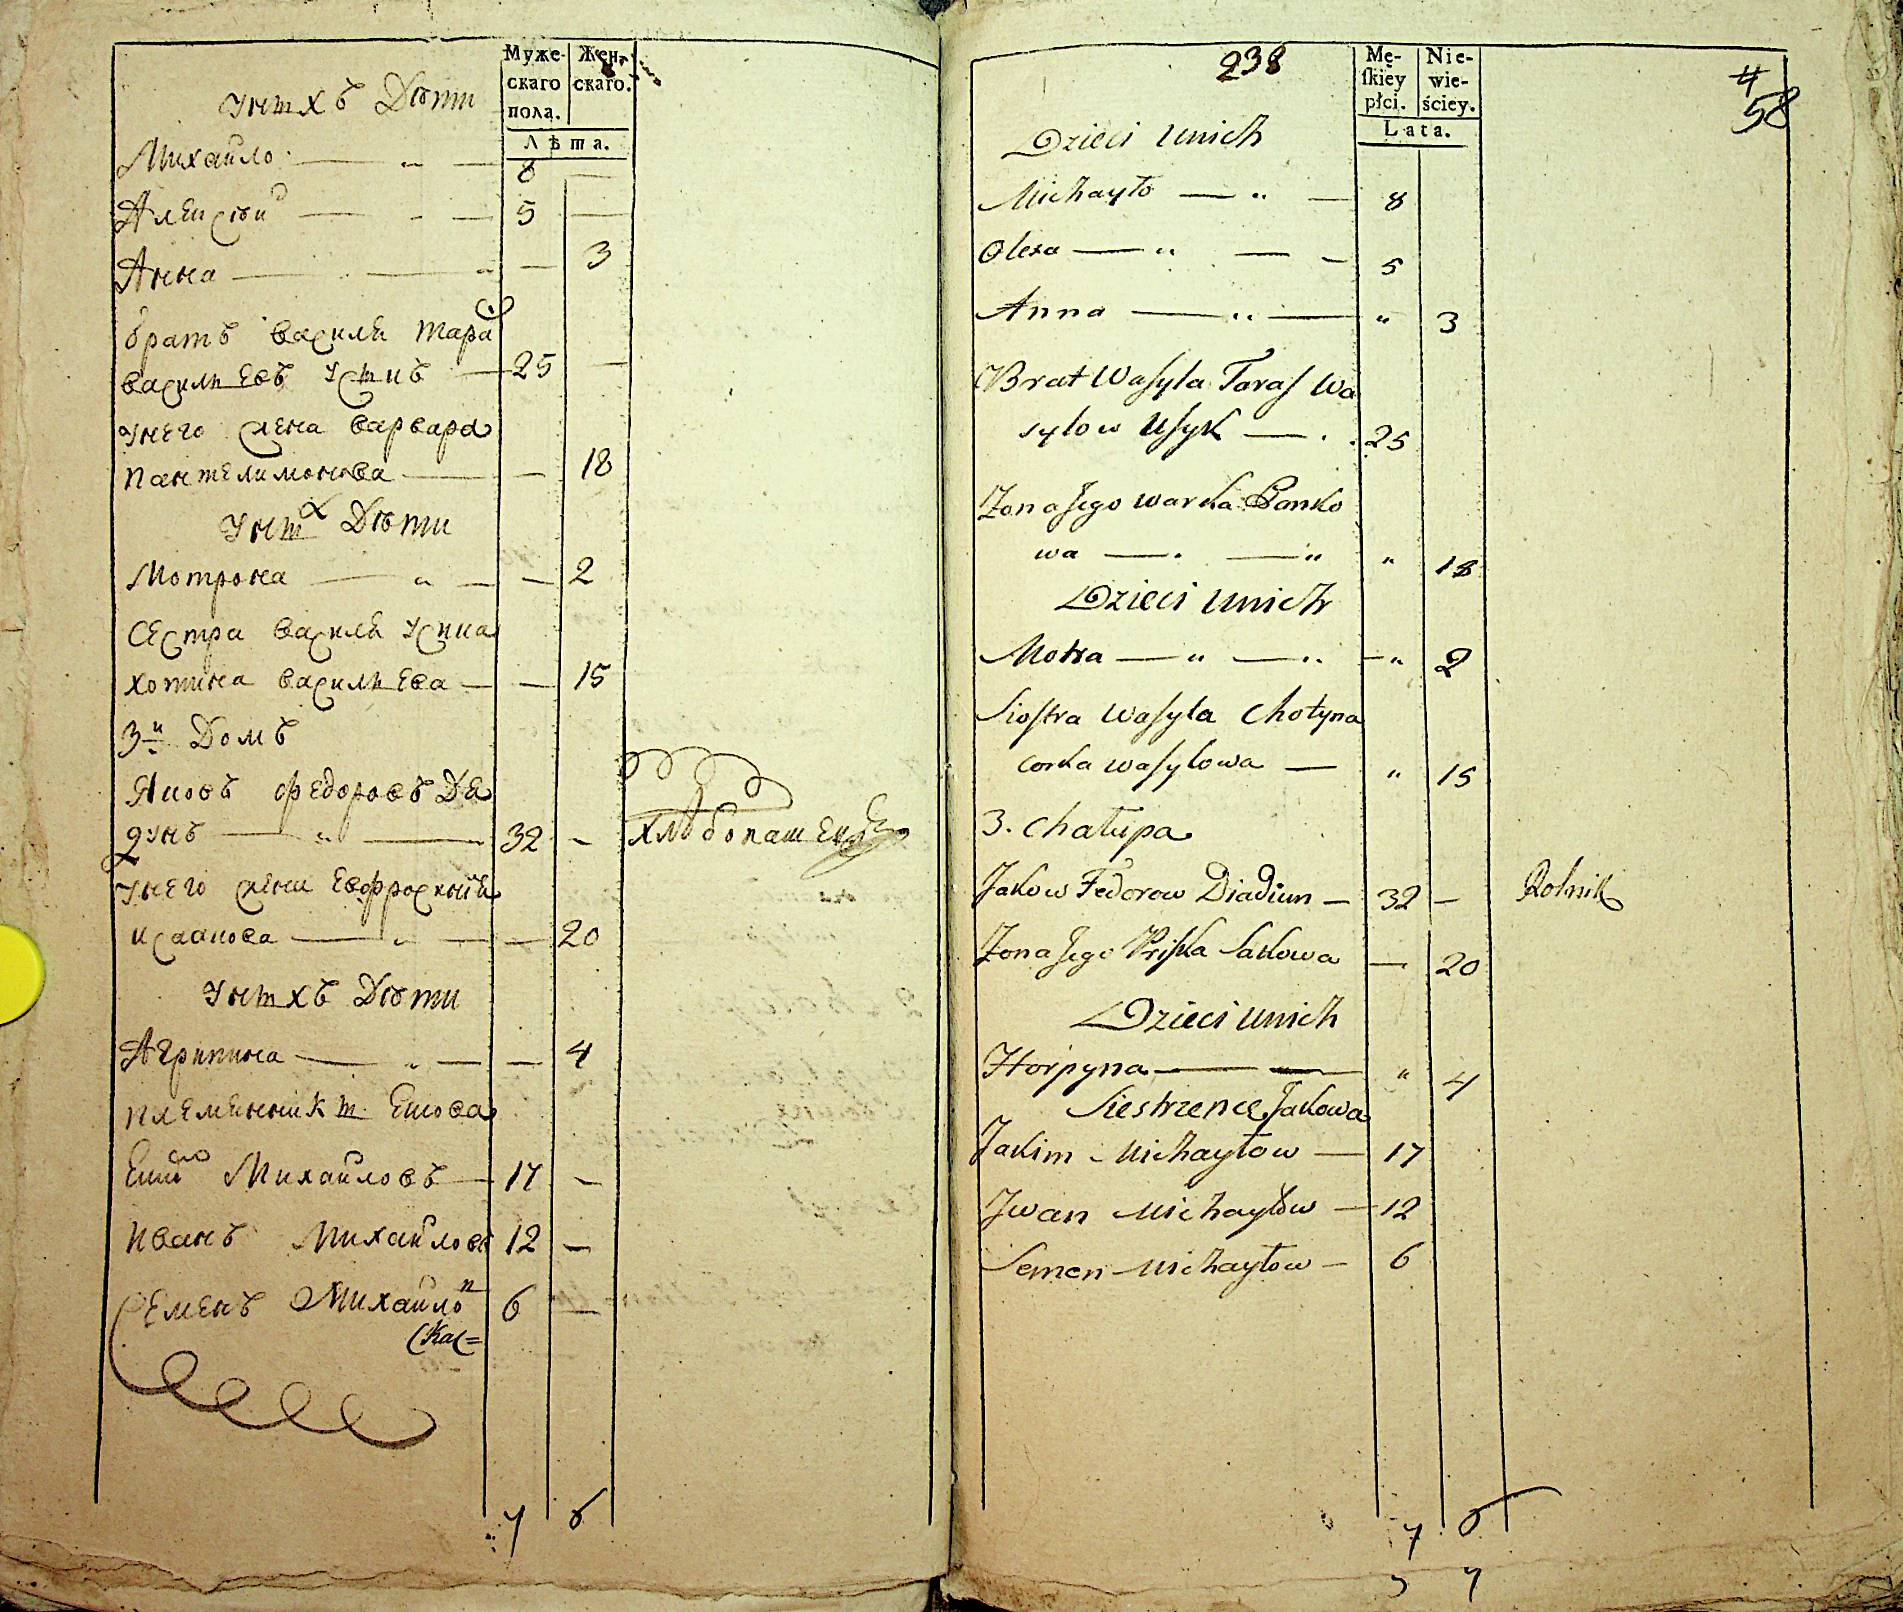 Муже-
скаго
пола.
Жен-
скаго.
Лѣта.
Унихъ Дѣти
Михайло — „ — 8 —
Алексѣй — - — 5 —
Анна — „ — 3
братъ василя тарас
васильевъ Усикъ — 25 —
Унего жена варвара
пантелимонова — — 18
Уних Дѣти
Мотрона — „ — — 2
Сестра василя Усика
хотина васильева — — 15
3й Домъ
Яковъ федоровъ Дя
дунъ — „ — 32 - хлѣбопашецъ
Унего жена Евфросинія
исаакова — „ — — 20
Унихъ Дѣти
Агрипина — „ — — 4
племянники Екова
Еким Михайловъ — 17 -
Иванъ Михайловъ 12 -
Семенъ Михайло 6 —
7 6
238
Mę-
ſkiey
płci.
Nie-
wie-
ściey.
Lata.
58
Dzieci Unich
Michayło — „ — 8
Olexa — „ — - 5
Anna — „ — „ 3
Brat Waſyla Taraſ Wa
sylow Uſyk — . . 25
Zona Jego Warka Panko
wa — . — „ „ 18
Dzieci Unich
Motra — „ — „ — „ 2
Siostra Waſyla Chotyna
corka Waſylowa — „ 15
3. Chałupa
Jakow Fedorow Diadiun — 32 — Rolnik
Zona Jego Priſka Sakowa — 20
Dzieci Unich
Horpyna — — „ 4
Siestrzence Jakowa
Jakim Michayłow — 17
Jwan Michayłow — 12
Semen Michayłow — 6
7 6